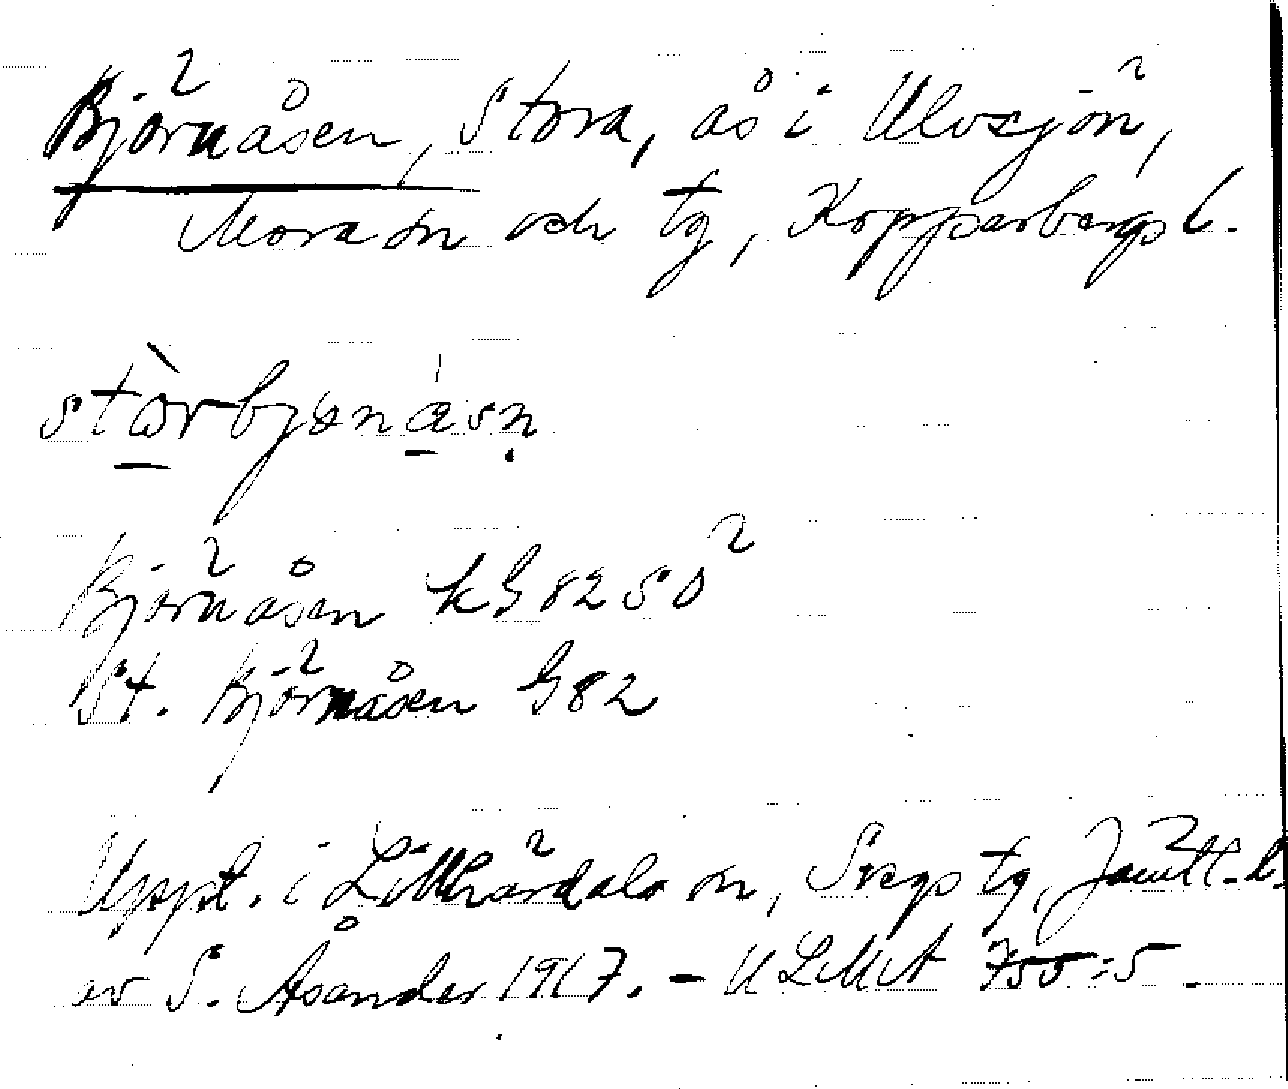 Björnåsen, Stora, ås i Ulvsjön,
Mora sn och tg, Kopparbergs l.
stòrbjønåsn̥
Björnåsen kG 82 SO
St. Björnåsen G 82
Uppt. i Lillhärdals sn, Svegs tg, Jämtl. l.
av S. Åsander 1917. – ULMA 755:5.